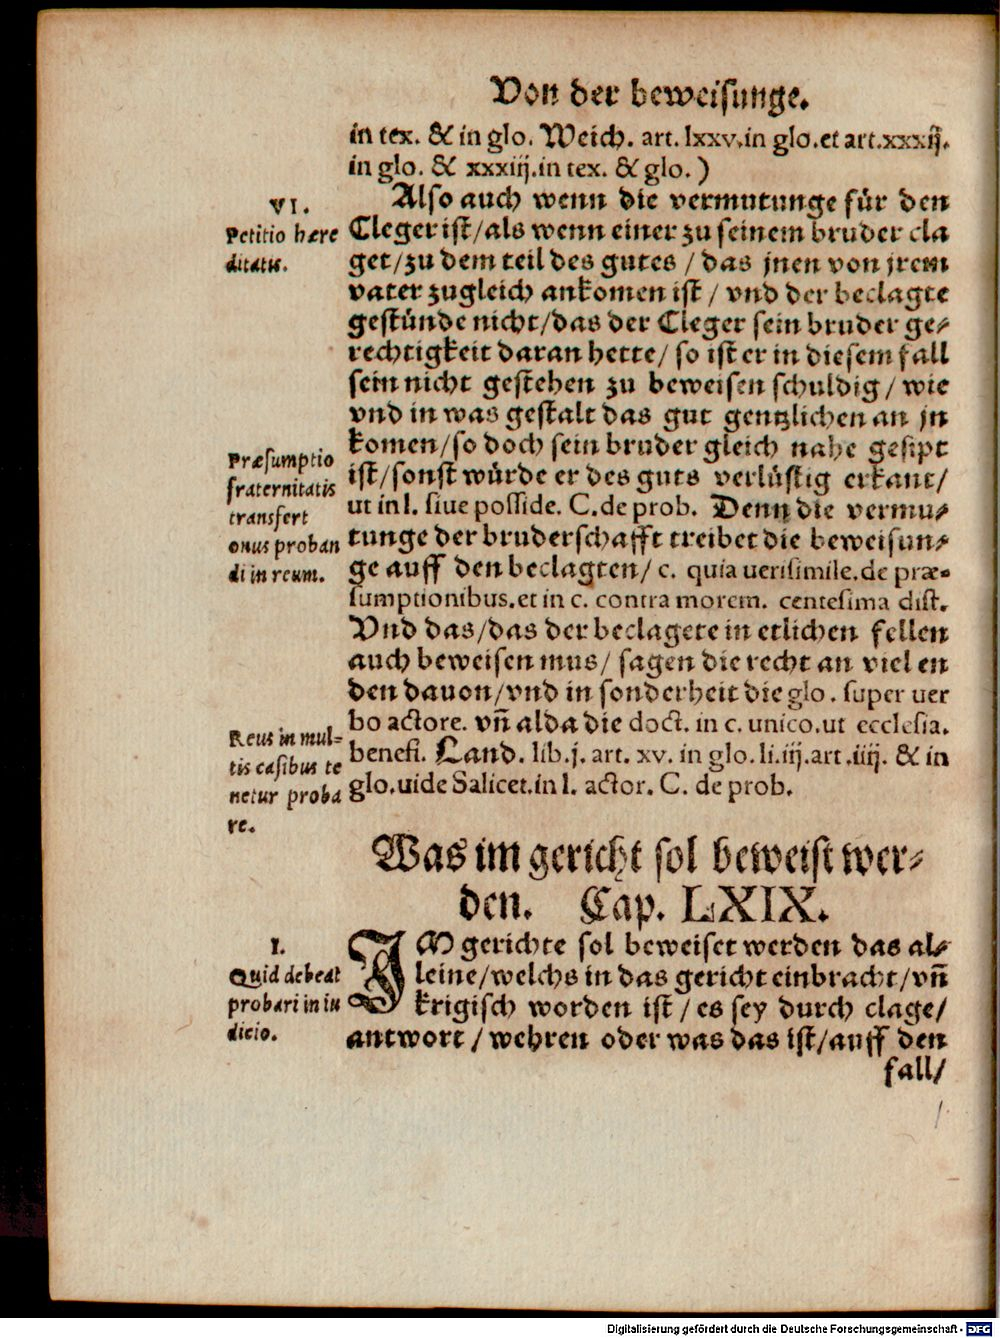 Von der beweisunge.
in tex. & in glo. Weich. art. lxxv. in glo. et art. xxxij.
in glo. & xxxiij. in tex. & glo. )
VI.
Petitio hære
ditatis.
Also auch wenn die vermutunge für den
Cleger ist/als wenn einer zu seinem bruder cla
get/zu dem teil des gutes / das jnen von jrem
vater zugleich ankomen ist / vnd der beclagte
gestünde nicht/das der Cleger sein bruder ge⸗
rechtigkeit daran hette/ so ist er in diesem fall
sein nicht gestehen zu beweisen schuldig / wie
vnd in was gestalt das gut gentzlichen an jn
komen/so doch sein bruder gleich nahe gesipt
ist/sonst würde er des guts verlüstig erkant/
Præsumptio
fraternitatis
transfert
onus proban
di in reum.
ut in l. siue posside. C. de prob. Denn die vermu⸗
tunge der bruderschafft treibet die beweisun⸗
ge auff den beclagten/ c. quia uerisimile. de præ⸗
sumptionibus. et in c. contra morem. centesima dist.
Vnd das/das der beclagete in etlichen fellen
auch beweisen mus/ sagen die recht an viel en
den dauon/vnd in sonderheit die glo. super uer
bo actore. vñ alda die doct. in c. unico. ut ecclesia.
benefi. Land. lib. j. art. xv. in glo. li. iij. art. iiij. & in
glo. uide Salicet. in l. actor. C. de prob.
Reus in mul=
tis casibus te
netur proba
re.
Was im gericht sol beweist wer⸗
den. Cap. LXIX.
I.
Quid debeat
probari in iu
dicio.
IM gerichte sol beweiset werden das al⸗
leine/welchs in das gericht einbracht/vñ
krigisch worden ist / es sey durch clage/
antwort / wehren oder was das ist/auff den
fall/
Digitalisierung gefördert durch die Deutsche Forschungsgemeinschaft - DFG